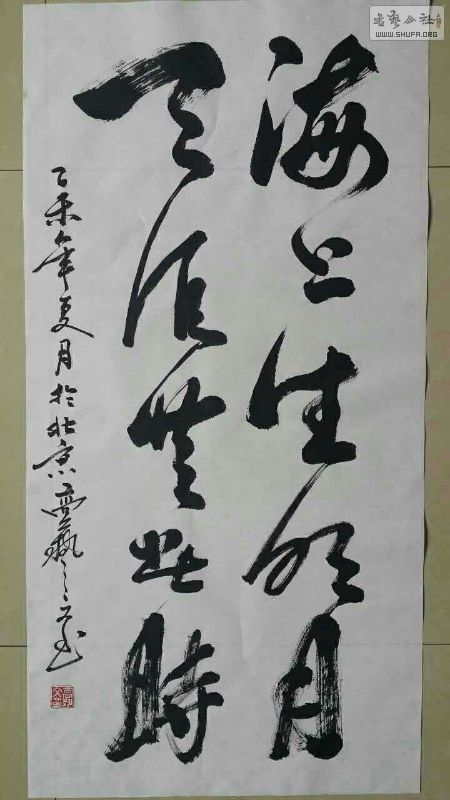 海上生明月
天涯共此時
乙未年夏月於北京
書藝公社
WWW.SHUFA.ORG